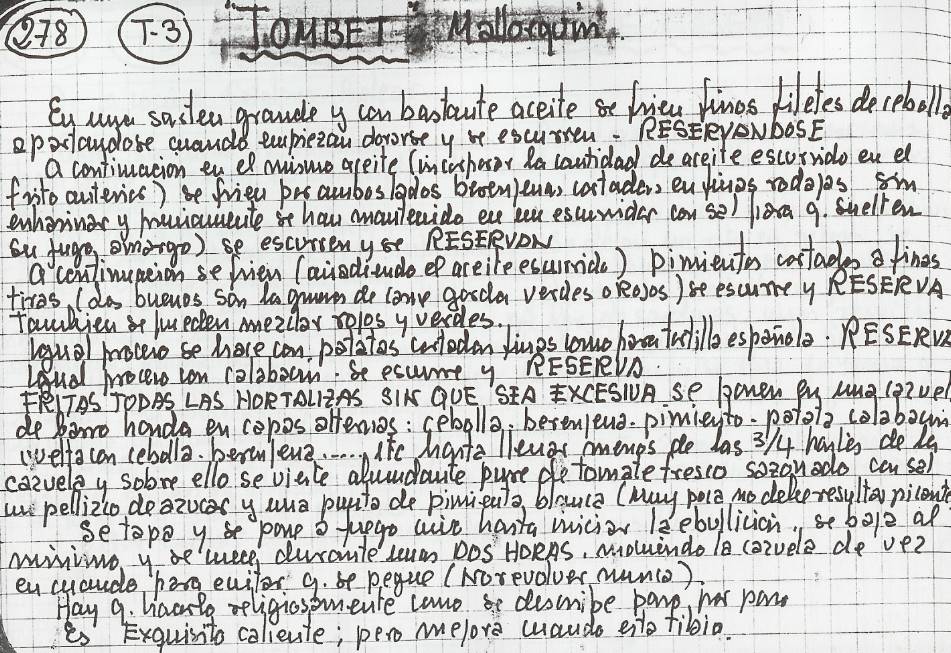 278 T-3 "TOMBET" Mallorquin.
En una sarten grande y con bastante aceite se frien finos filetes de cebolla
apartandose cuando empiezan dorarse y se escurren - RESERVANDOSE
A continuación en el mismo aceite (incorporar la cantidad de aceite escurrido en el
frito anterior) se frien por ambos lados berenjenas cortadas en finas rodajas sin
enharinar y previamente se han mantenido en un escurridor con sal para q. suelten
su jugo amargo) se escurren y se RESERVAN
A continuación se frien (añadiendo el aceite escurrido) pimientos cortados a finas
tiras, (los buenos son de carne gorda verdes o Rojos) se escurre y RESERVA
Tambien se pueden mezclar rojos y verdes.
Igual proceso se hace con patatas cortadas finas como para tortilla española. RESERVA
Igual proceso con calabacin. Se escurre y RESERVA.
FRITAS TODAS LAS HORTALIZAS SIN QUE SEA EXCESIVA se ponen en una cazuel
de barro honda en capas alternas: cebolla. berenjena. pimiento - patata calabacin
vuelta con cebolla. berenjena..... etc hasta llenar menos de las 3/4 partes de la
cazuela y sobre ello se vierte abundante pure de tomate fresco sazonado con sal
un pellizco de azucar y una punta de pimienta blanca (muy poca no debe resultar picante
Se tapa y se pone a fuego vivo hasta iniciar la ebullición, se baja al
minimo y se cuece durante unas DOS HORAS. moviendo la cazuela de vez
en cuando para evitar q. se pegue (No revolver nunca).
Hay q. hacerlo religiosamente como se describe paso por paso
Es Exquisito caliente; pero mejora cuando esta tibio.